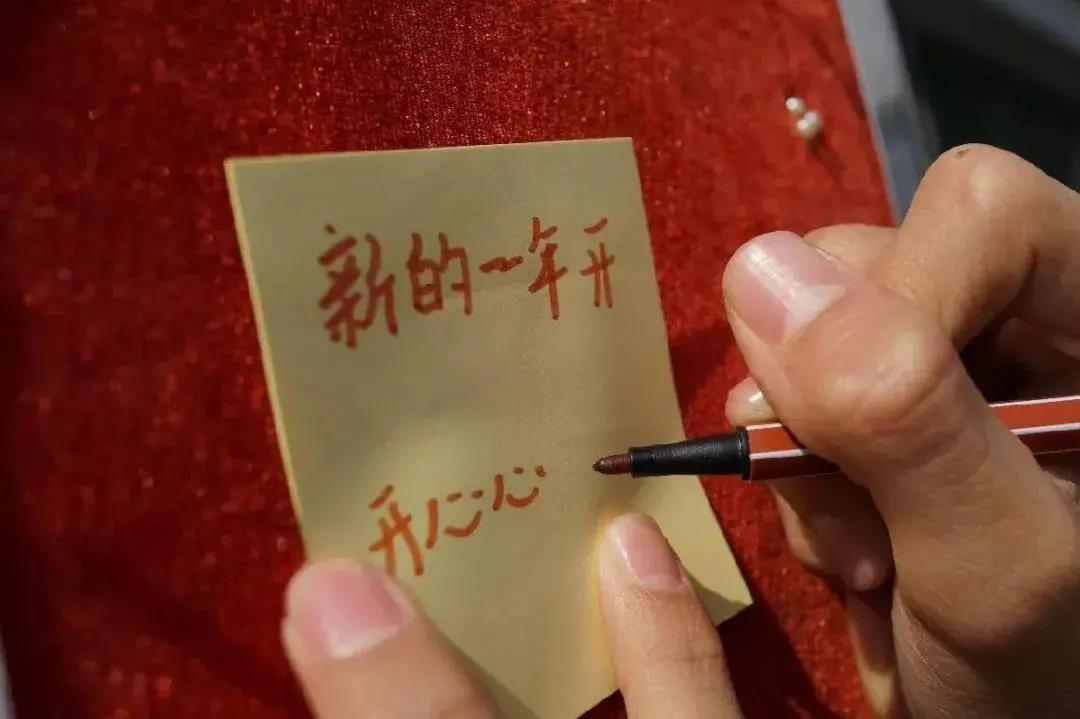 新的一年开
开心心